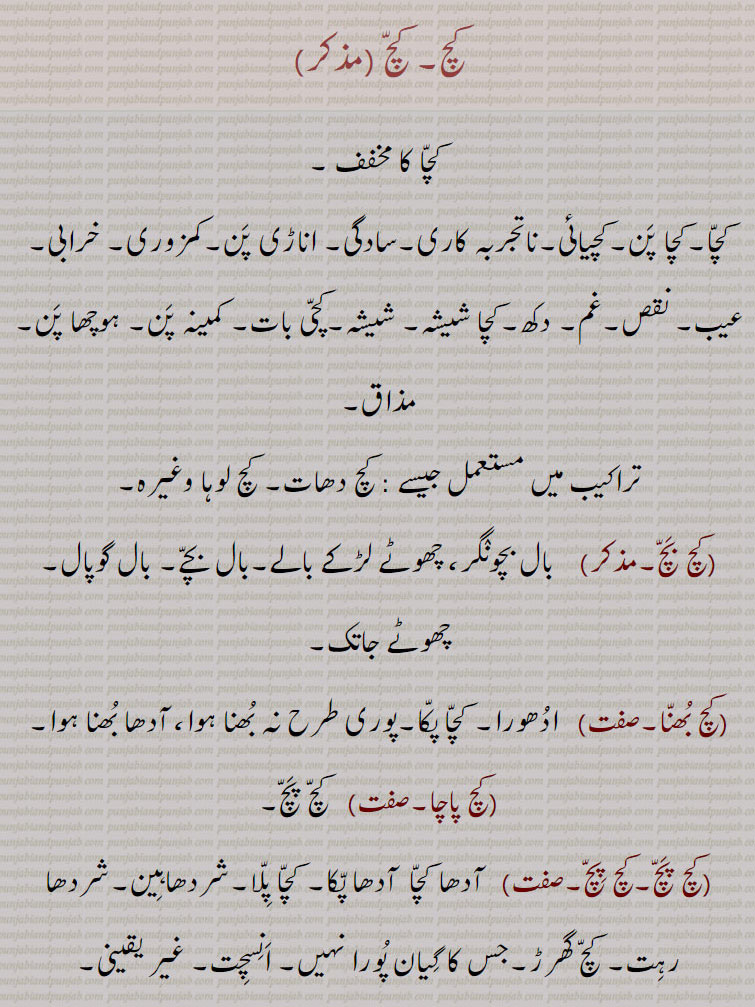 کچ ۔ کچّ (مذکر)
کچّا کا مخفف ۔
کچّا۔کچا پَن۔کچیائی۔ناتجربہ کاری۔سادگی۔ اناڑی پَن۔کمزوری۔ خرابی۔
عیب۔ نقص۔غم۔ دکھ۔کچا شیشہ۔ شیشہ۔کچّی بات۔ کمینہ پَن۔ ہوچھا پَن۔
مذاق۔
تراکیب میں مستعمل جیسے : کچ دھات۔ کچ لوہا وغیرہ۔
(کچ بَچّ۔مذکر) بال بچونْگر، چھوٹے لڑکے بالے۔بال بچّے۔ بال گوپال۔
چھوٹے جاتک۔
(کچ بُھنّا۔صفت) ادُھورا۔ کچّا پکّا۔پوری طرح نہ بُھنا ہوا، آدھا بُھنا ہوا۔
(کچ پاچا۔صفت) کچّ پَچّ۔
(کچ پَچّ۔کچ پِچّ۔صفت) آدھا کچّا آدھا پّکا۔ کچّا پِلّا۔شردھاہِین۔شردھا
رہِت۔ کچّ گھرڑ۔جس کا گیان پُورا نہیں۔ اَنِسچِت۔ غیر یقینی۔
punjabiandpunjab.com